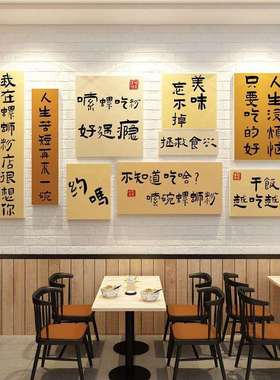 我在螺蛳粉店很想你
人生苦短再来一碗
嗦螺吃粉
好過瘾
約嗎
美味
忘不掉
拯救食欲
不知道吃啥?
嗦碗螺蛳粉
人生没烦恼
只要吃的好
干飯
越吃越